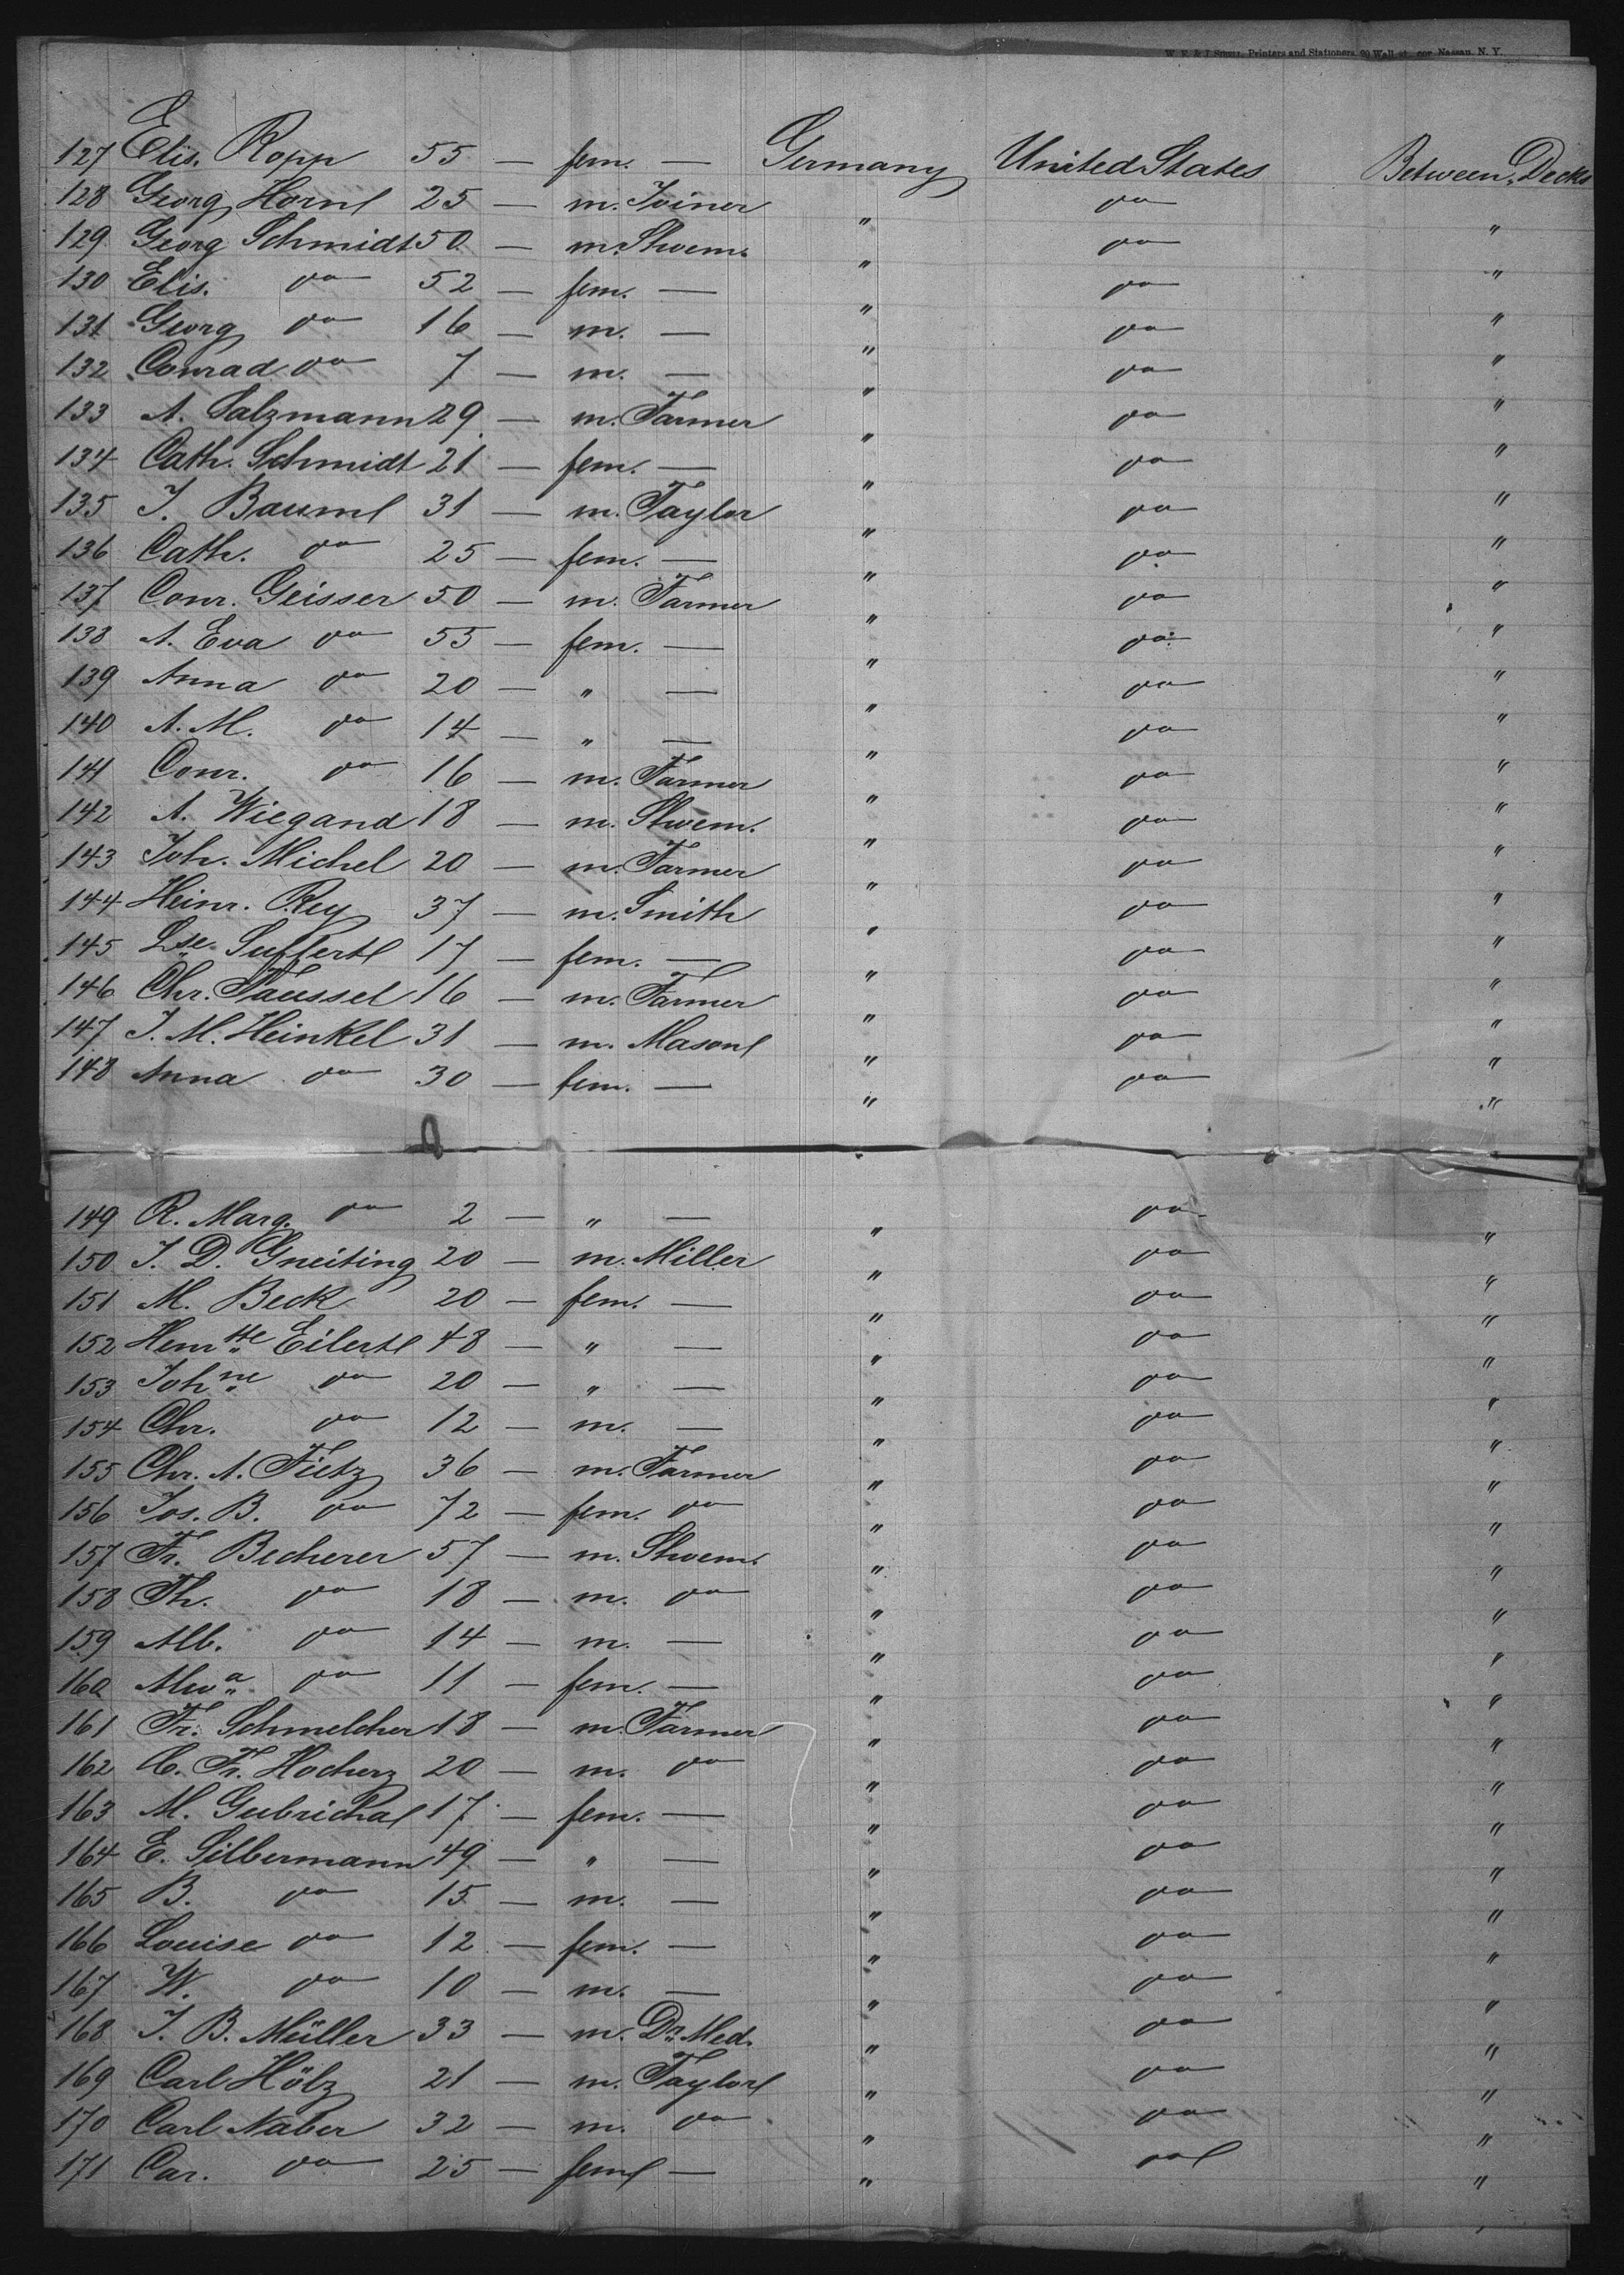 W. F. & J. Printers and Stationers, 90 Wall st. cor. Nassau, N. Y.
127 Elis. Ropp 55 — fem. — Germany United States Between Decks
128 Georg Horn 25 — m. Joiner " do "
129 Georg Schmidt 50 — m. Shoem. " do "
130 Elis. do 52 — fem. — " do "
131 Georg do 16 — m. — " do "
132 Conrad do 7 — m. — " do "
133 A. Salzmann 29 — m. Farmer " do "
134 Cath. Schmidt 21 — fem. — " do "
135 J. Bauml 31 — m. Taylor " do "
136 Cath. do 25 — fem. — " do "
137 Conr. Geisser 50 — m. Farmer " do "
138 A. Eva do 55 — fem. — " do "
139 Anna do 20 — " — " do "
140 A. M. do 14 — " — " do "
141 Conr. do 16 — m. Farmer " do "
142 A. Wiegand 18 — m. Shoem. " do "
143 Joh. Michel 20 — m. Farmer " do "
144 Heinr. Rey 37 — m. Smith " do "
145 Lse. 17 — fem. — " do "
146 Chr. Faussel 16 — m. Farmer " do "
147 J. M. Heinkel 31 — m. Mason " do "
148 Anna do 30 — fem. — " do "
149 R. Marg. do 2 — " — " do "
150 J. D. Gneiting 20 — m. Miller " do "
151 M. Beck 20 — fem. — " do "
152 Henrtte Eilert 48 — " — " do "
153 Johne do 20 — " — " do "
154 Chr. do 12 — m. — " do "
155 Chr. A. Fietz 36 — m. Farmer " do "
156 Jos. B. do 72 — fem. do " do "
157 Fr. Becherer 57 — m. Shoem. " do "
158 Th. do 18 — m. do " do "
159 Alb. do 14 — m. — " do "
160 Alwa do 11 — fem. — " do "
161 Fr. Schmelcher 18 — m. Farmer " do "
162 C. Fr. Hocherz 20 — m. do " do "
163 M. 17 — fem. — " do "
164 E. Silbermann 49 — " — " do "
165 B. do 15 — m. — " do "
166 Louise do 12 — fem. — " do "
167 W. do 10 — m. — " do "
168 J. B. Müller 33 — m. Dr. Med. " do "
169 Carl Hölz 21 — m. Taylor " do "
170 Carl Naber 32 — m. do " do "
171 Car. do 25 — fem — " do "